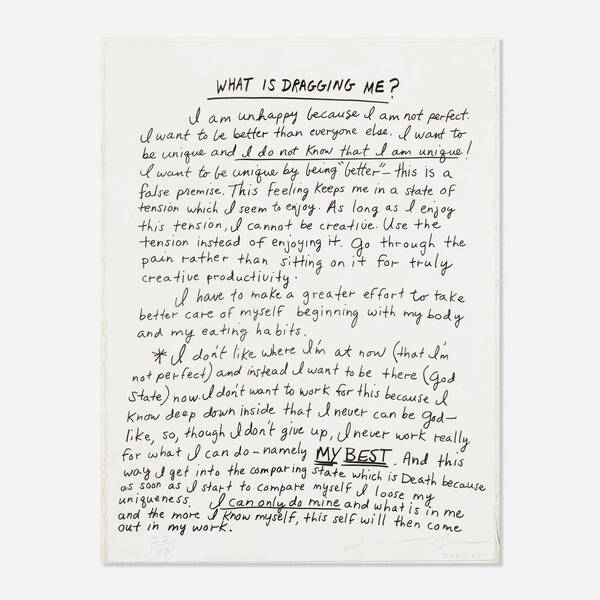 WHAT IS DRAGGING ME?
I am unhappy because I am not perfect.
I want to be better than everyone else. I want to
be unique and I do not know that I am unique!
I want to be unique by being "better" – this is a
false premise. This feeling keeps me in a state of
tension which I seem to enjoy. As long as I enjoy
this tension, I cannot be creative. Use the
tension instead of enjoying it. Go through the
pain rather than sitting on it for truly
creative productivity.
I have to make a greater effort to take
better care of myself beginning with my body
and my eating habits.
* I don't like where I'm at now (that I'm
not perfect) and instead I want to be there (God
State) now. I don't want to work for this because I
know deep down inside that I never can be God–
like, so, though I don't give up, I never work really
for what I can do – namely MY BEST. And this
way I get into the comparing state which is Death because
as soon as I start to compare myself I loose my
uniqueness. I can only do mine and what is in me
and the more I know myself, this self will then come
out in my work.
22/100